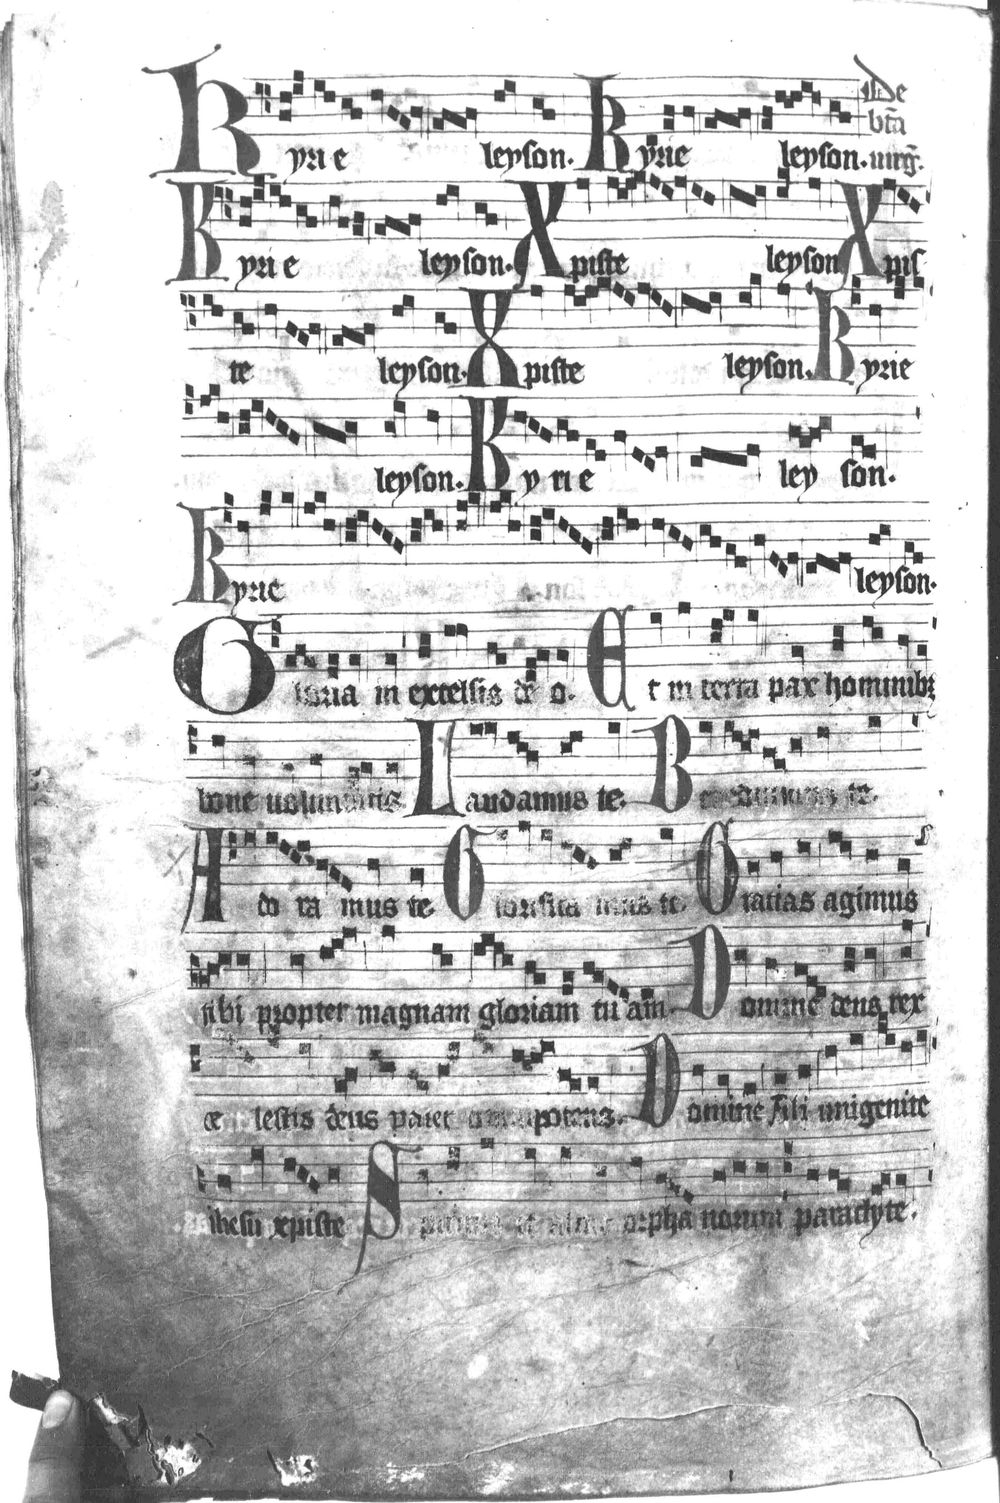 De
Kyrie leyson. Kyrie leyson. bt̄a uirḡ.
Kyrie leyson. Xpiste leyson Xpis
te leyson. Xpiste leyson. Kyrie
leyson. Kyrie leyson.
Kyrie leyson.
Gloria in excelsis de o. Et in terra pax hominibꝫ
bone uoluntatis. Laudamus te. Benedicimus te.
Ado ra mus te. Glorifica mus te. Gratias agimus
tibi propter magnam gloriam tu am. Domine deus rex
ce lestis deus pater omnipotens. Domine fili unigenite
ihesu xpiste Spiritus et alme orpha norum paraclyte.